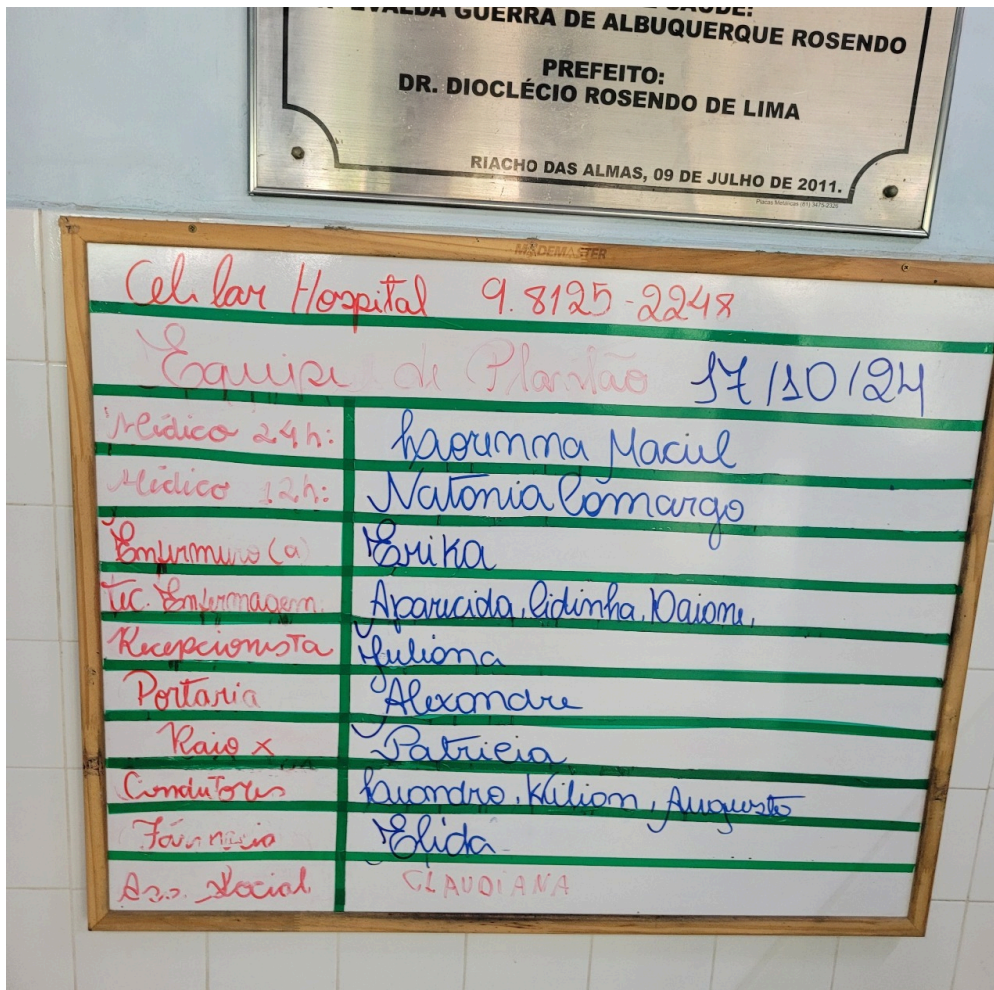 EVALDA GUERRA DE ALBUQUERQUE ROSENDO
PREFEITO:
DR. DIOCLÉCIO ROSENDO DE LIMA
RIACHO DAS ALMAS, 09 DE JULHO DE 2011.
MADEMASTER
Celular Hospital 9.8125-2248
Equipe de Plantão 17/10/24
Médico 24h: Maciel
Médico 12h: Natania Camargo
Enfermeiro (a) Erika
Tec. Enfermagem Aparecida, Cidinha, Daiane,
Recepcionista Juliana
Portaria Alexandre
Raio X Patricia
Condutores Augusto
Farmácia Elida
Ass. Social CLAUDIANA